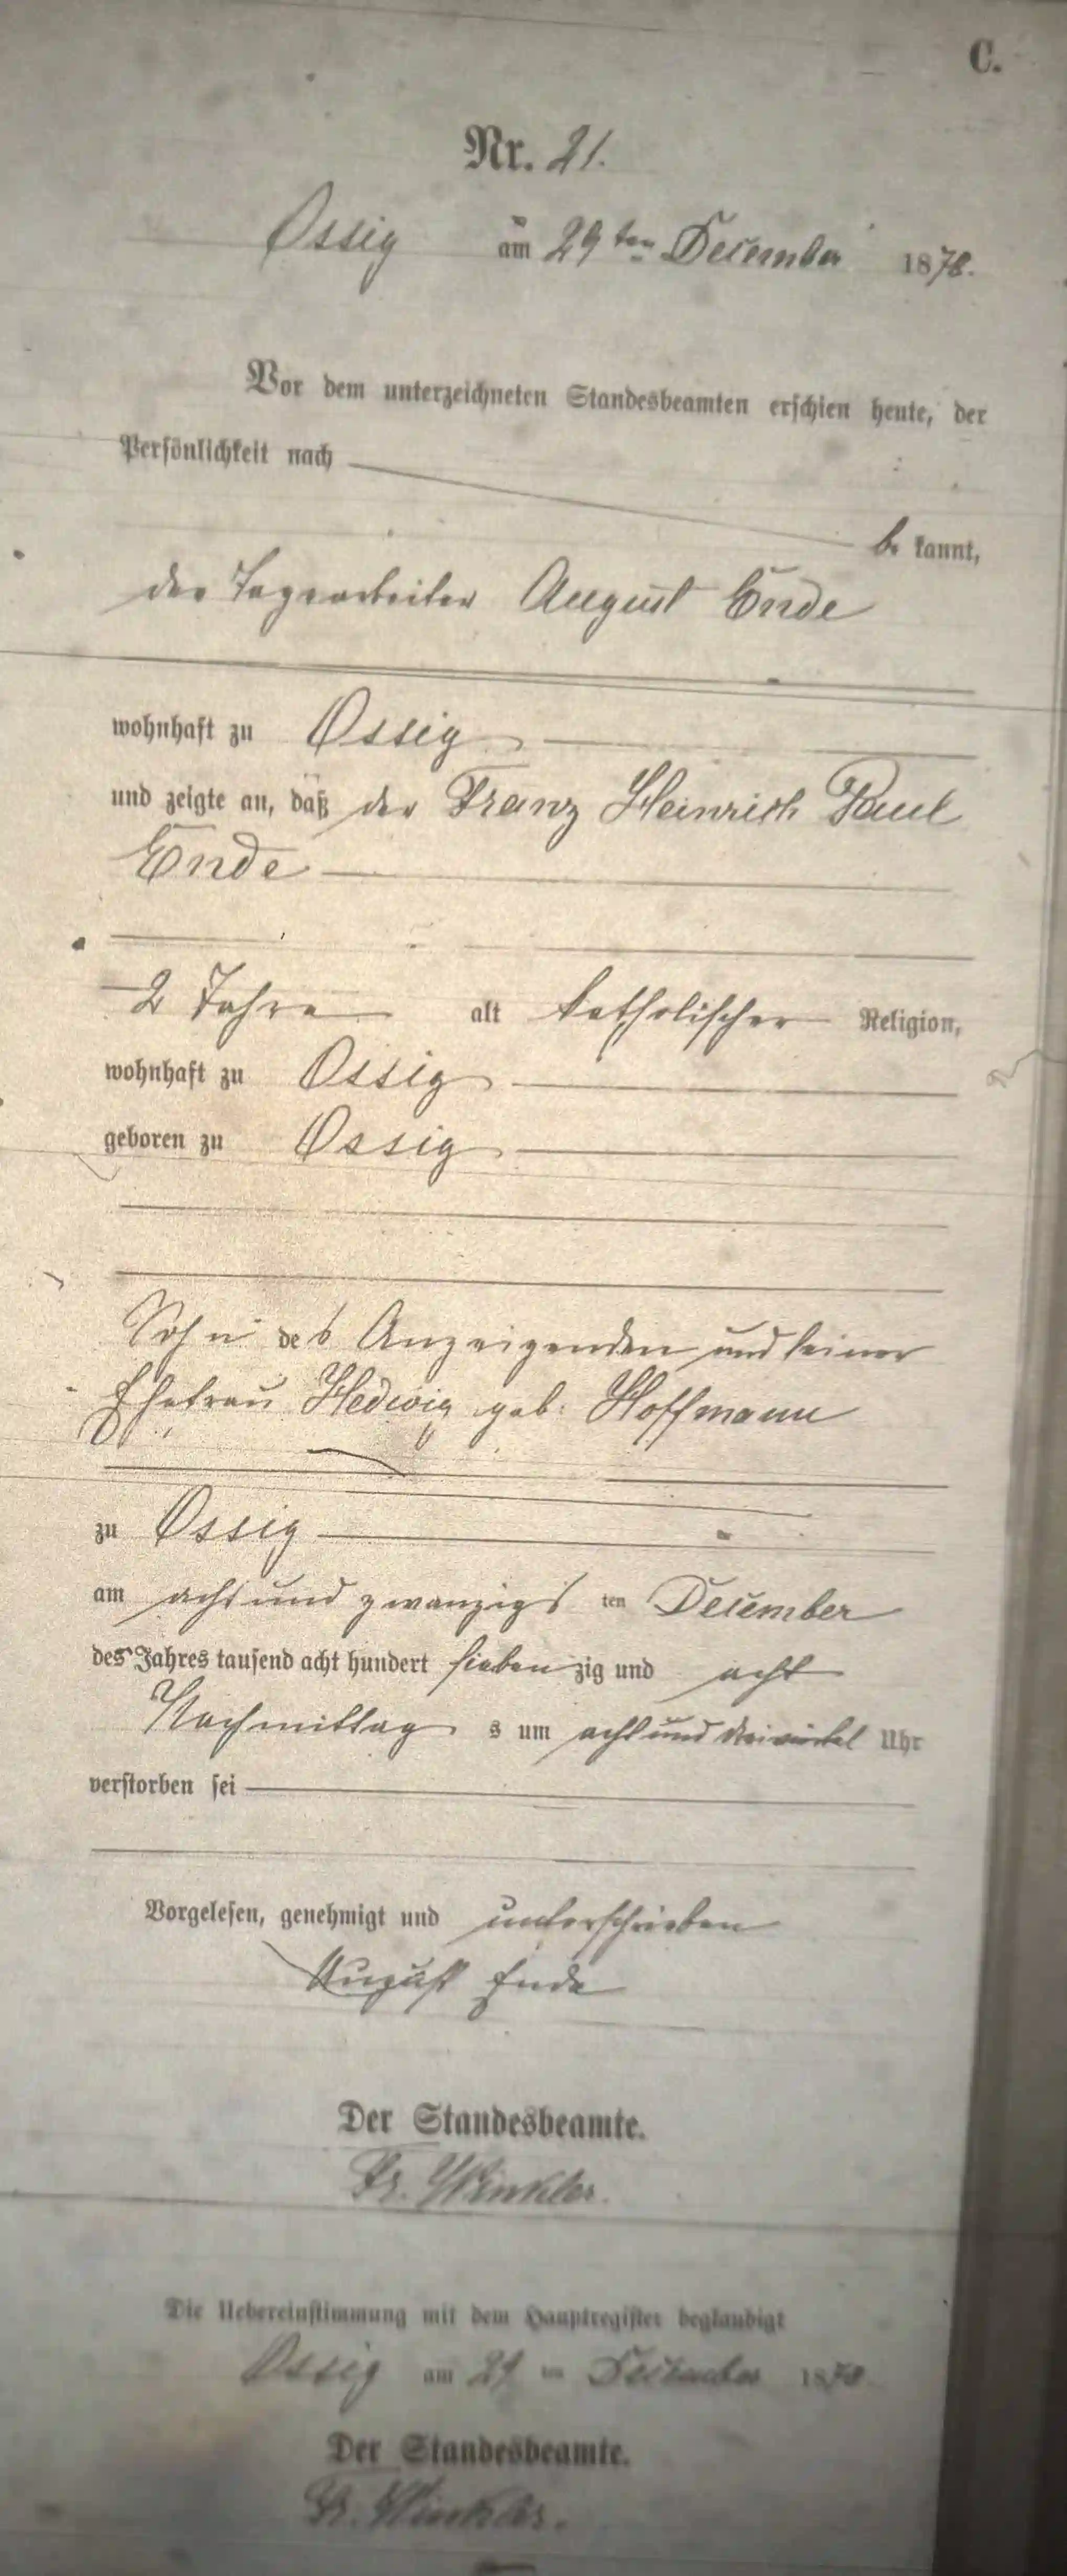 C.
Nr. 21.
Ossig am 29ten December 1878.
Vor dem unterzeichneten Standesbeamten erschien heute, der
Persönlichkeit nach
be kannt,
der Tagearbeiter August Ende
wohnhaft zu Ossig
und zeigte an, daß der Franz Heinrich Paul
Ende
2 Jahre alt katholischer Religion,
wohnhaft zu Ossig
geboren zu Ossig
Sohn des Anzeigenden und seiner
Ehefrau Hedwig geb. Hoffmann
zu Ossig
am acht und zwanzigs ten December
des Jahres tausend acht hundert sieben zig und acht
Nachmittag s um acht und dreiviertel Uhr
verstorben sei
Vorgelesen, genehmigt und unterschrieben
August Ende
Der Standesbeamte.
Fr. Winkler.
Die Uebereinstimmung mit dem Hauptregister beglaubigt
Ossig am 29 ten December 1878
Der Standesbeamte.
Fr. Winkler.